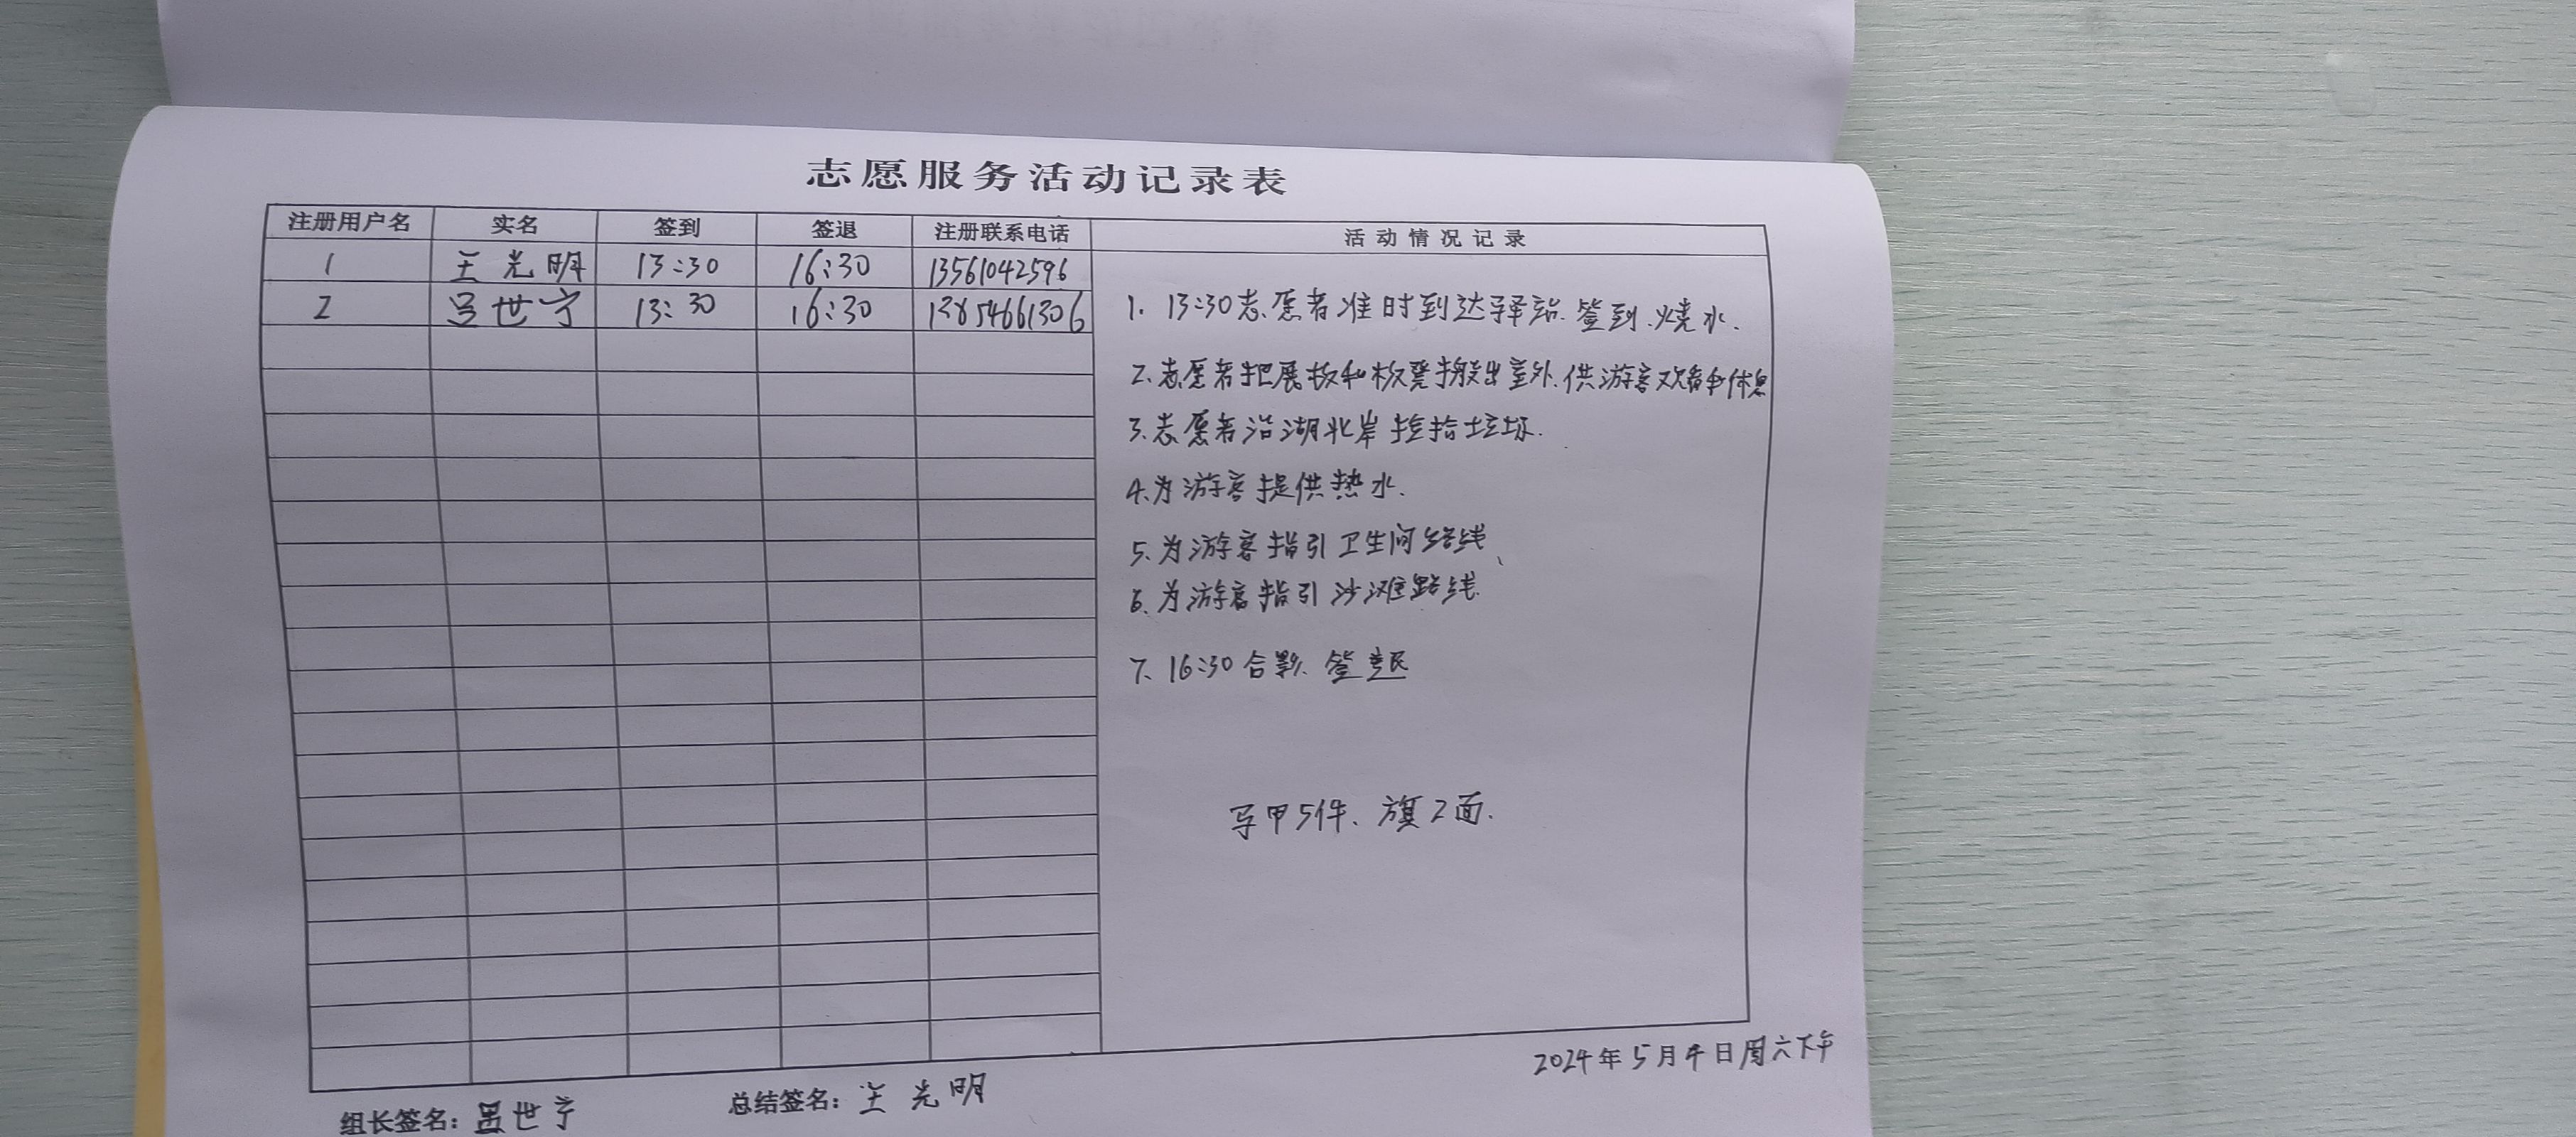 志愿服务活动记录表
注册用户名 实名 签到 签退 注册联系电话 活动情况记录
1 王光明 13:30 16:30 13561042596
2 吕世宁 13:30 16:30 13854661306
1. 13:30志愿者准时到达驿站.签到.烧水.
2.志愿者把展板和板凳搬出室外.供游客观看和休息
3.志愿者沿湖北岸捡拾垃圾.
4.为游客提供热水.
5.为游客指引卫生间路线、
6.为游客指引沙滩路线.
7. 16:30合影.签退
马甲5件、旗2面.
2024年5月4日周六下午
组长签名：吕世宁 总结签名：王光明